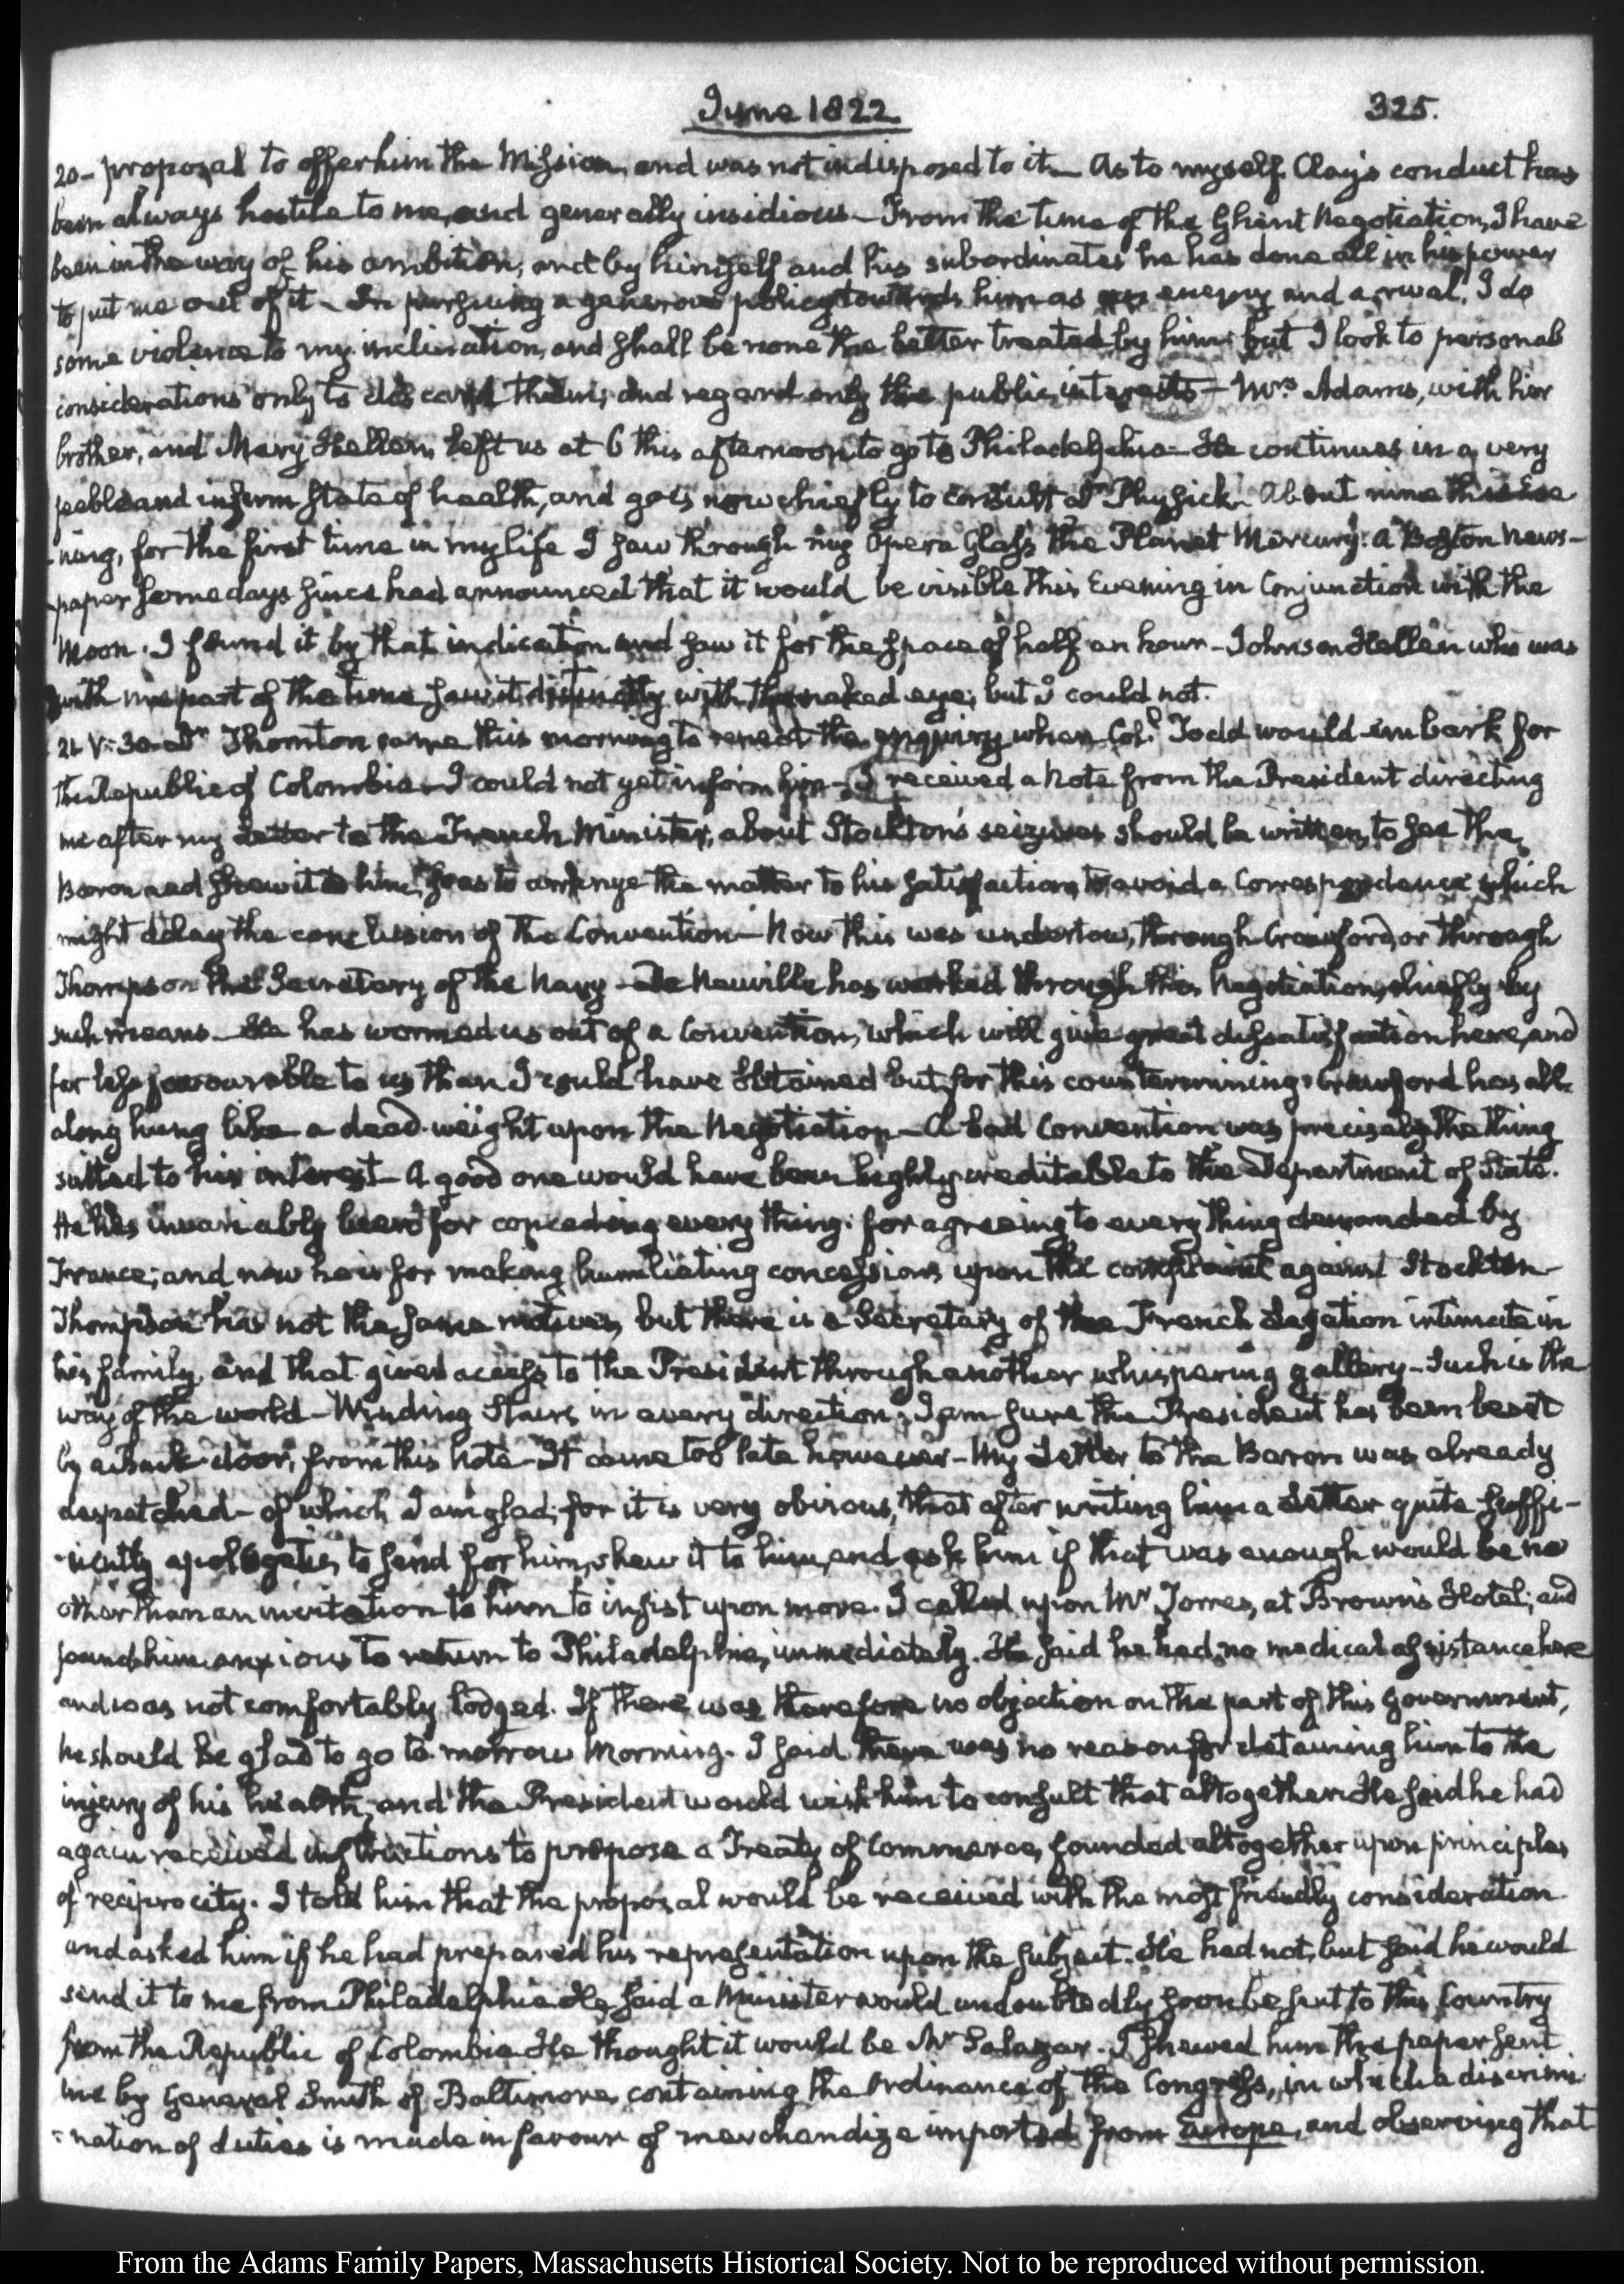 June 1822.
325.
20- proposal to offer him the Mission, and was not indisposed to it— As to myself Clay's conduct has
been always hostile to me, and generally insidious— From the time of the Ghent Negotiation, I have
been in the way of his ambition; and by himself and his subordinates he has done all in his power
to put me out of it— In pursuing a generous policy towards him as an enemy and a rival, I do
some violence to my inclination, and shall be none the better treated by him: but I look to personal
considerations only to discard them; and regard only the public interests— Mrs. Adams, with her
brother, and Mary Hellen, left us at 6 this afternoon to go to Philadelphia— He continues in a very
feeble and infirm state of health, and goes now chiefly to consult Dr Physick. About nine this Eve
-ning, for the first time in my life I saw through my Opera Glass the Planet Mercury. A Boston News-
-paper some days since had announced that it would be visible this Evening in Conjunction with the
Moon. I found it by that indication and saw it for the space of half an hour— Johnson Hellen who was
with me part of the time saw it distinctly with the naked eye; but I could not.
21. V:30. Dr Thornton came this morning to repeat the enquiry when Coll. Todd would embark for
the Republic of Colombia— I could not yet inform him— I received a Note from the President directing
me after my Letter to the French Minister, about Stockton's seizures should be written, to see the
Baron and shew it to him, so as to arrange the matter to his satisfaction, to avoid a Correspondence which
might delay the conclusion of the Convention— Now this was undertow, through Crawford, or through
Thompson the Secretary of the Navy— De Neuville has worked through this Negotiation, chiefly by
such means— He has wormed us out of a Convention, which will give great dissatisfaction here, and
far less favourable to us than I could have obtained but for this countermining. Crawford has all
along hung like a dead-weight upon the Negotiation— A bad Convention was precisely the thing
suited to his interest— A good one would have been highly creditable to the Department of State.
He has invariably been for conceding every thing: for agreeing to every thing demanded by
France; and now he is for making humiliating concessions upon the complaint against Stockton—
Thompson has not the same motives, but there is a Secretary of the French Legation intimate in
his family, and that gives access to the President through another whispering gallery— Such is the
way of the world— Winding Stairs in every direction. I am sure the President has been beset
by a back-door, from this Note— It came too late however— My Letter to the Baron was already
despatched— of which I am glad; for it is very obvious, that after writing him a Letter quite suffi-
-ciently apologetic, to send for him, shew it to him, and ask him if that was enough would be no
other than an invitation to him to insist upon more. I called upon Mr Torres, at Brown's Hotel; and
found him anxious to return to Philadelphia, immediately. He said he had no medical assistance here
and was not comfortably lodged. If there was therefore no objection on the part of this Government,
he should be glad to go to-morrow Morning. I said there was no reason for detaining him to the
injury of his health, and the President would wish him to consult that altogether. He said he had
again received instructions to propose a Treaty of Commerce, founded altogether upon principles
of reciprocity. I told him that the proposal would be received with the most friendly consideration
and asked him if he had prepared his representation upon the subject. He had not, but said he would
send it to me from Philadelphia. He said a Minister would undoubtedly soon be sent to this Country
from the Republic of Colombia. He thought it would be Mr Salazar. I shewed him the paper sent
me by General Smith of Baltimore, containing the Ordinance of the Congress, in which a discrimi
-nation of duties is made in favour of merchandize imported from Europe, and observing that
From the Adams Family Papers, Massachusetts Historical Society. Not to be reproduced without permission.